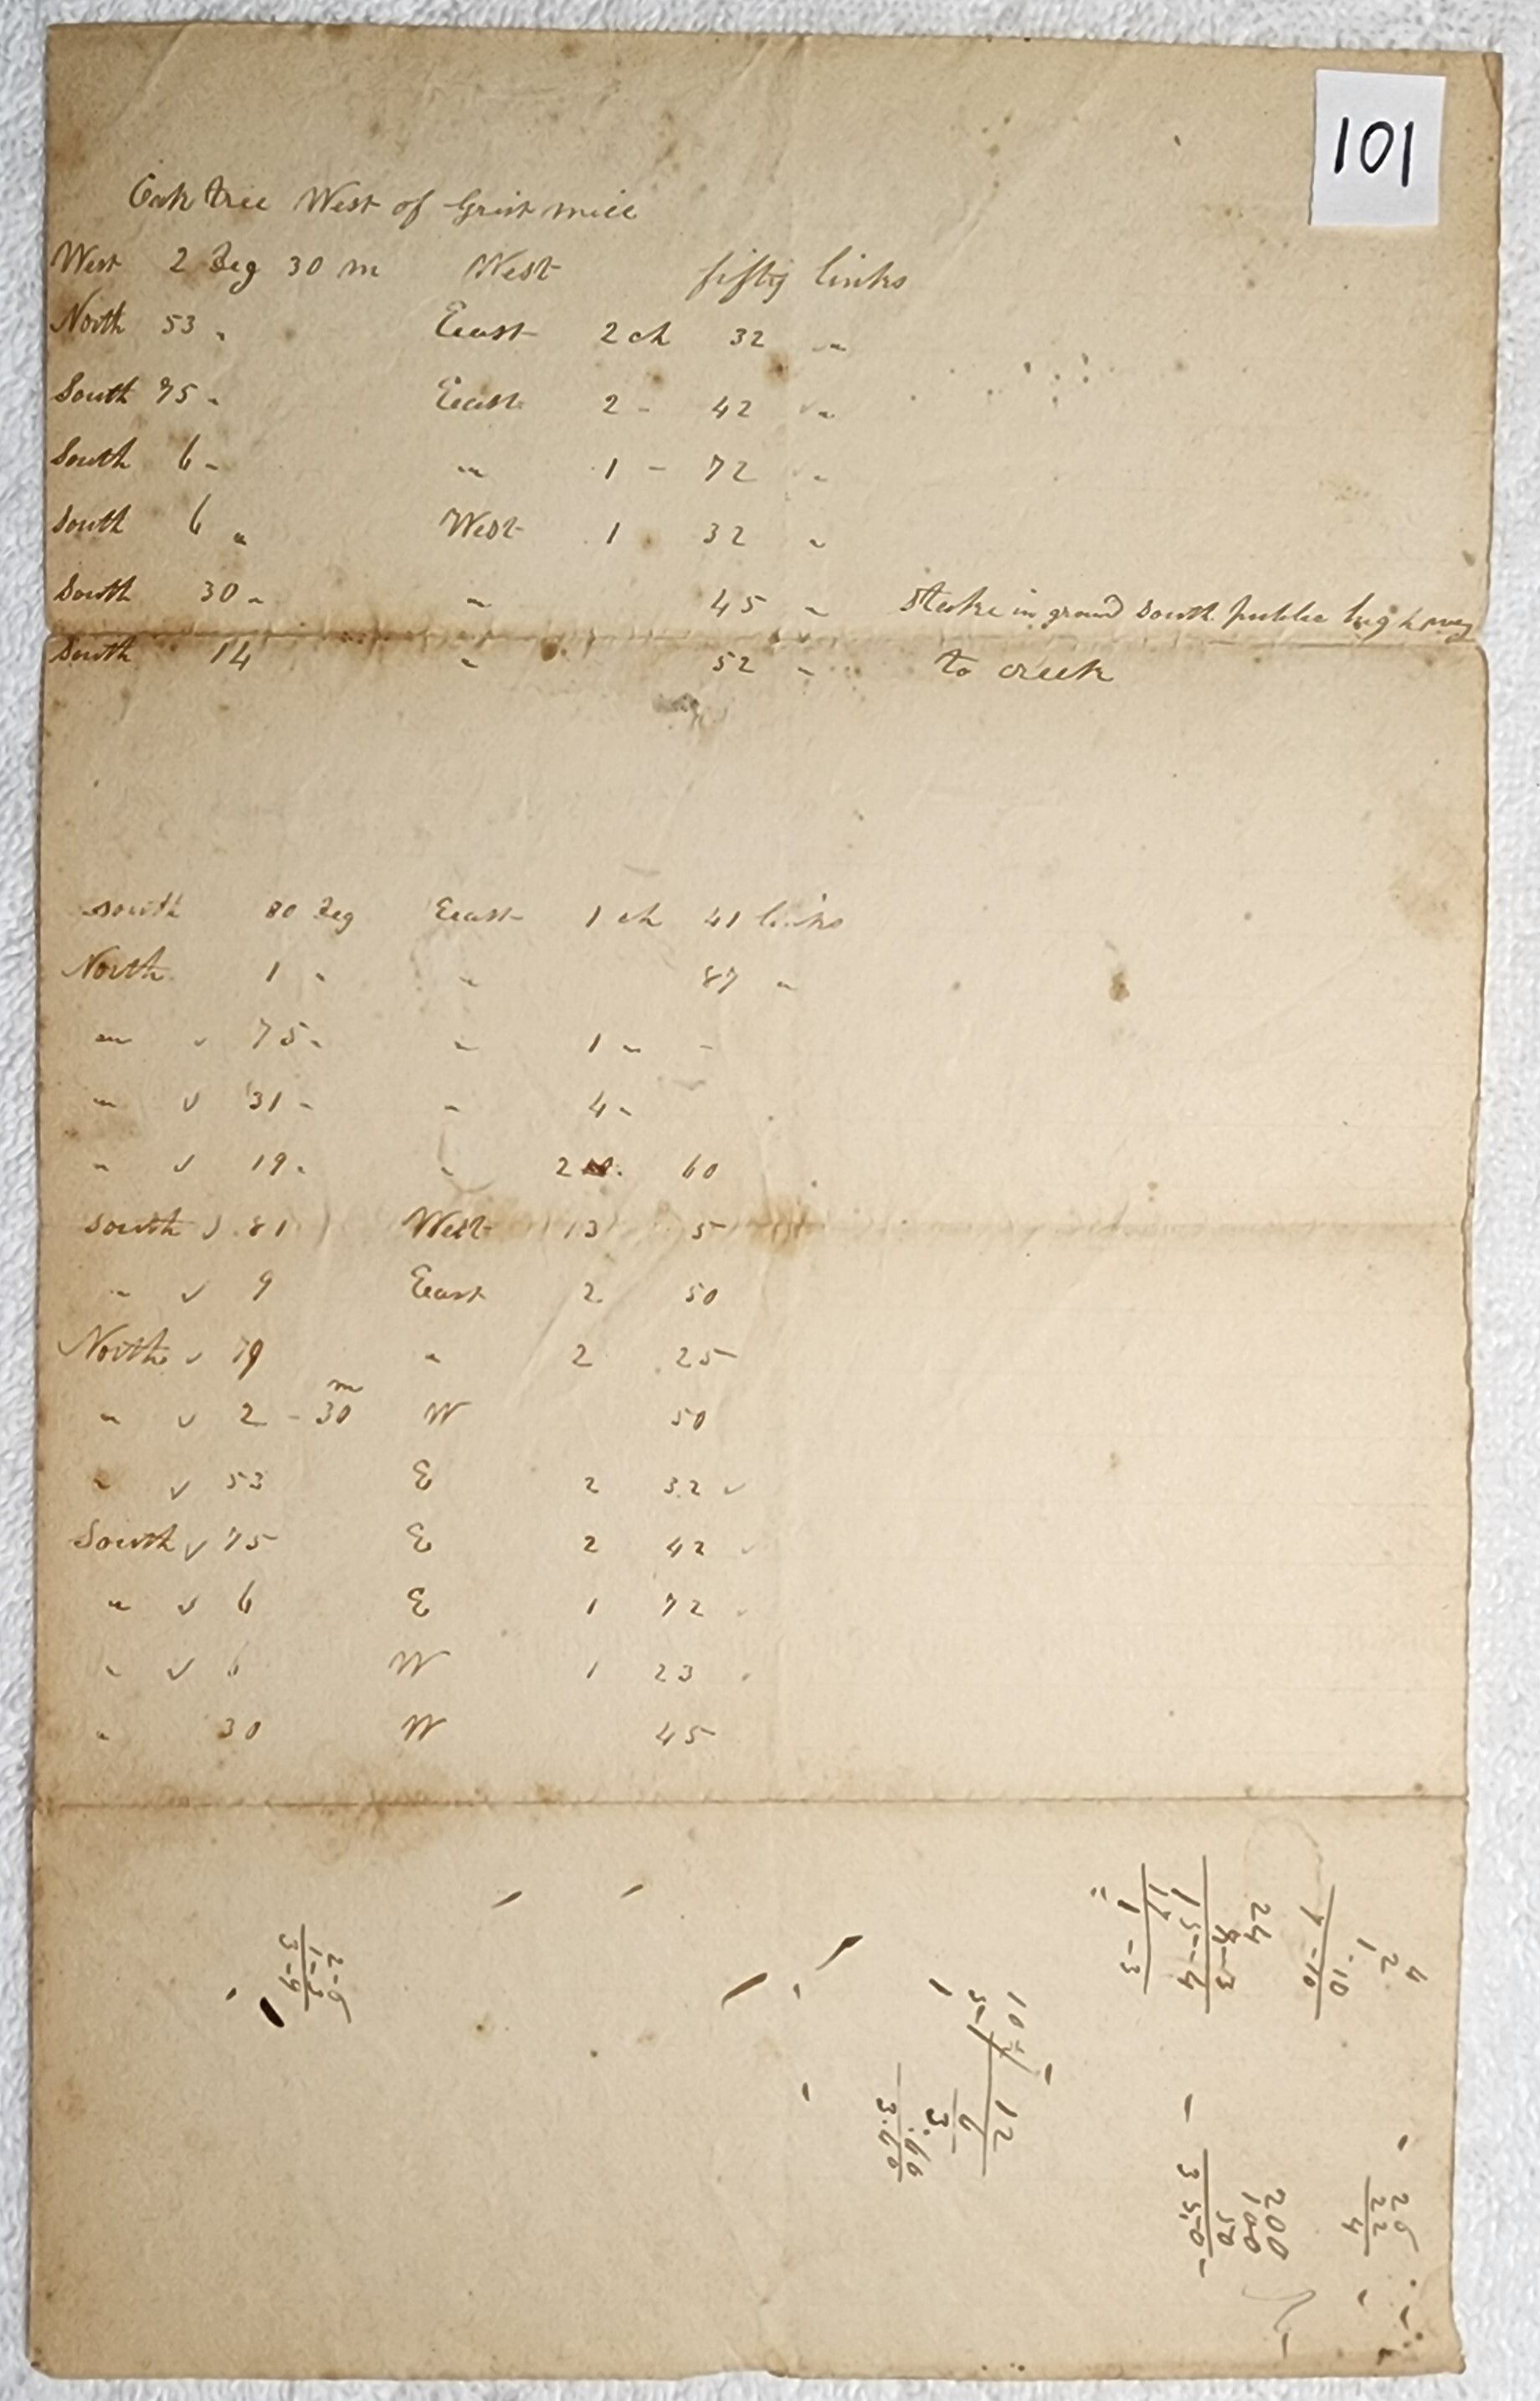 101
Oak tree West of Grist mill
West 2 Deg 30 m West fifty links
North 53 " Eeast 2 ch 32 "
South 75 " Eeast 2 - 42 "
South 6 - " 1 - 72 "
South 6 " West 1 32 "
South 30 " " 45 " Stake in ground South public highway
South 14 " 52 " to creek
South 80 Deg Eeast 1 ch 41 links
North 1 " " 87 "
" ✓ 75 " " 1 " -
" ✓ 31 - " 4 "
" ✓ 19 " " 2 60
South ✓ 81 West 13 5
" ✓ 9 Eeast 2 50
North ✓ 79 " 2 25
" ✓ 2 - 30 m W 50
" ✓ 53 E 2 32 ✓
South ✓ 75 E 2 42 ✓
" ✓ 6 E 1 72 ✓
" ✓ 6 W 1 23
" 30 W 45
4
2
1.10
7-10
24
8-3
15-4
11
1-3
12
6
3.
.66
3.66
26
22
4
200
100
50
350
2-6
1-3
3-9